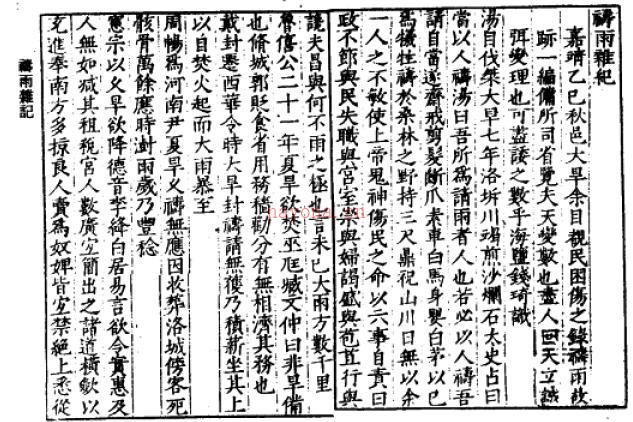 禱雨雜紀
嘉靖乙巳秋邑大旱余目覩民困傷之錄禱雨故
跡一編備所司省覽夫天變數也盡人回天立誠
弭變理也可盡諉之數乎海鹽錢琦識
湯自伐桀大旱七年洛坼川竭煎沙爛石太史占曰
當以人禱湯曰吾所為請雨者人也若必以人禱吾
請自當遂齋戒剪髮斷爪素車白馬身嬰白茅以已
為犧牲禱於桑林之野持三尺鼎祝山川曰無以余
一人之不敏使上帝鬼神傷民之命以六事自責曰
政不節與民失職與宮室崇與婦謁盛與苞苴行與
讒夫昌與何不雨之極也言未已大雨方數千里
魯僖公二十一年夏旱欲焚巫尫臧文仲曰非旱備
也脩城郭貶食省用務穡勸分有無相濟其務也
戴封遷西華令時大旱封禱請無獲乃積薪坐其上
以自焚火起而大雨暴至
周暢為河南尹夏旱久禱無應因收葬洛城傍客死
骸骨萬餘應時澍雨歲乃豐稔
憲宗以久旱欲降德音李絳白居易言欲令實惠及
人無如減其租稅宮人數廣宜簡出之諸道橫歛以
充進奉南方多掠良人賣為奴婢皆宜禁絕上悉從
禱雨雜記